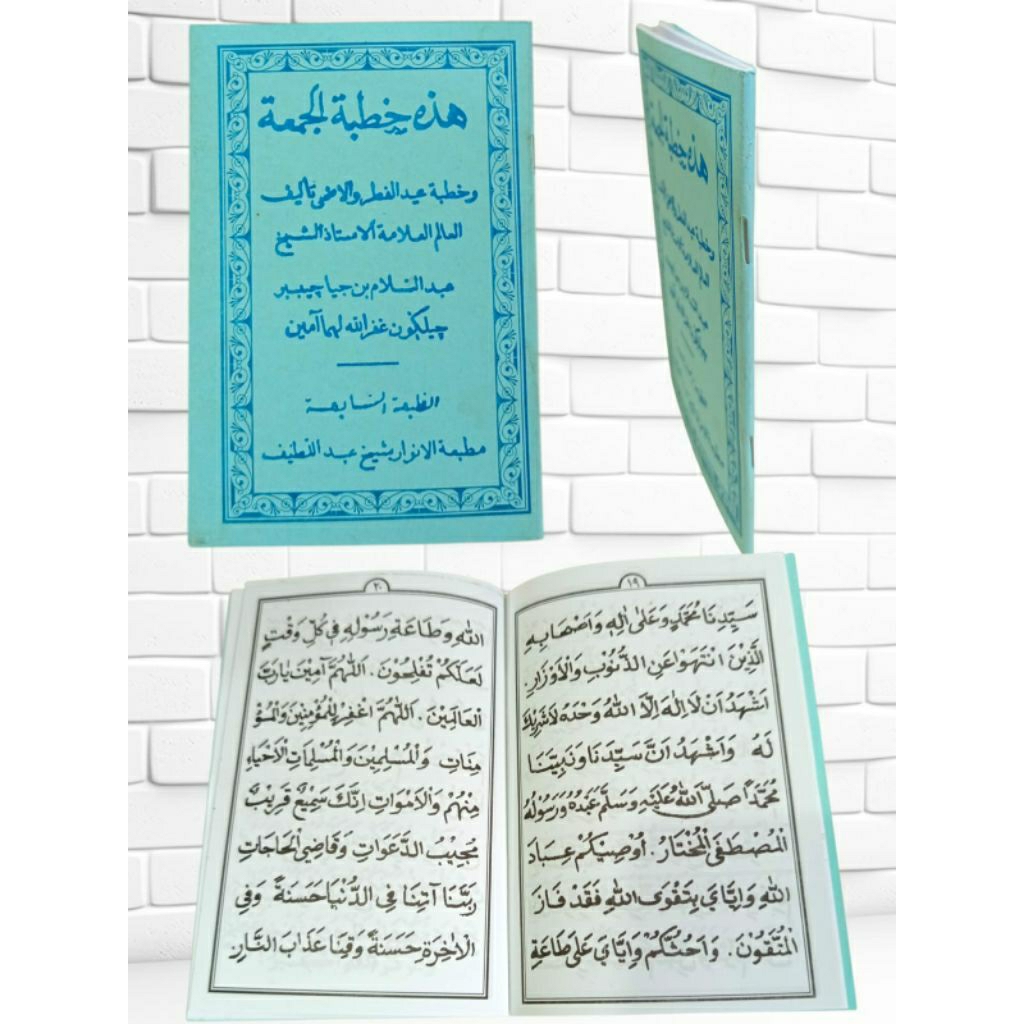 هذه خطبة الجمعة
وخطبة عيد الفطر والاضحى تأليف
العالم العلامة الاستاذ الشيخ
عبد السلام بن جيا چيبير
چيلڮون غفر الله لهما آمين
الطبعة السابعة
مطبعة الانوار بشيخ عبد اللطيف
هذه خطبة
١٩
سَيِّدِنَا مُحَمَّدٍ وَعَلٰى اٰلِهِ وَاَصْحَابِهِ
الَّذِيْنَ انْتَهَوْا عَنِ الذُّنُوْبِ وَالْاَوْزَارِ.
اَشْهَدُ اَنْ لَا اِلٰهَ اِلَّا اللهُ وَحْدَهُ لَا شَرِيْكَ
لَهُ وَاَشْهَدُ اَنَّ سَيِّدَنَا وَنَبِيَّنَا
مُحَمَّدًا صَلَّى اللهُ عَلَيْهِ وَسَلَّمَ عَبْدُهُ وَرَسُوْلُهُ
الْمُصْطَفَى الْمُخْتَارُ. اُوْصِيْكُمْ عِبَادَ
اللهِ وَاِيَّايَ بِتَقْوَى اللهِ فَقَدْ فَازَ
الْمُتَّقُوْنَ. وَاَحُثُّكُمْ وَاِيَّايَ عَلٰى طَاعَةِ
٢٠
اللهِ وَطَاعَةِ رَسُوْلِهِ فِي كُلِّ وَقْتٍ
لَعَلَّكُمْ تُفْلِحُوْنَ. اَللّٰهُمَّ آمِيْنَ يَارَبَّ
الْعَالَمِيْنَ. اَللّٰهُمَّ اغْفِرْ لِلْمُؤْمِنِيْنَ وَالْمُؤْ
مِنَاتِ وَالْمُسْلِمِيْنَ وَالْمُسْلِمَاتِ الْاَحْيَاءِ
مِنْهُمْ وَالْاَمْوَاتِ اِنَّكَ سَمِيْعٌ قَرِيْبٌ
مُجِيْبُ الدَّعَوَاتِ وَقَاضِي الْحَاجَاتِ
رَبَّنَا آتِنَا فِي الدُّنْيَا حَسَنَةً وَفِي
الْاٰخِرَةِ حَسَنَةً وَقِنَا عَذَابَ النَّارِ